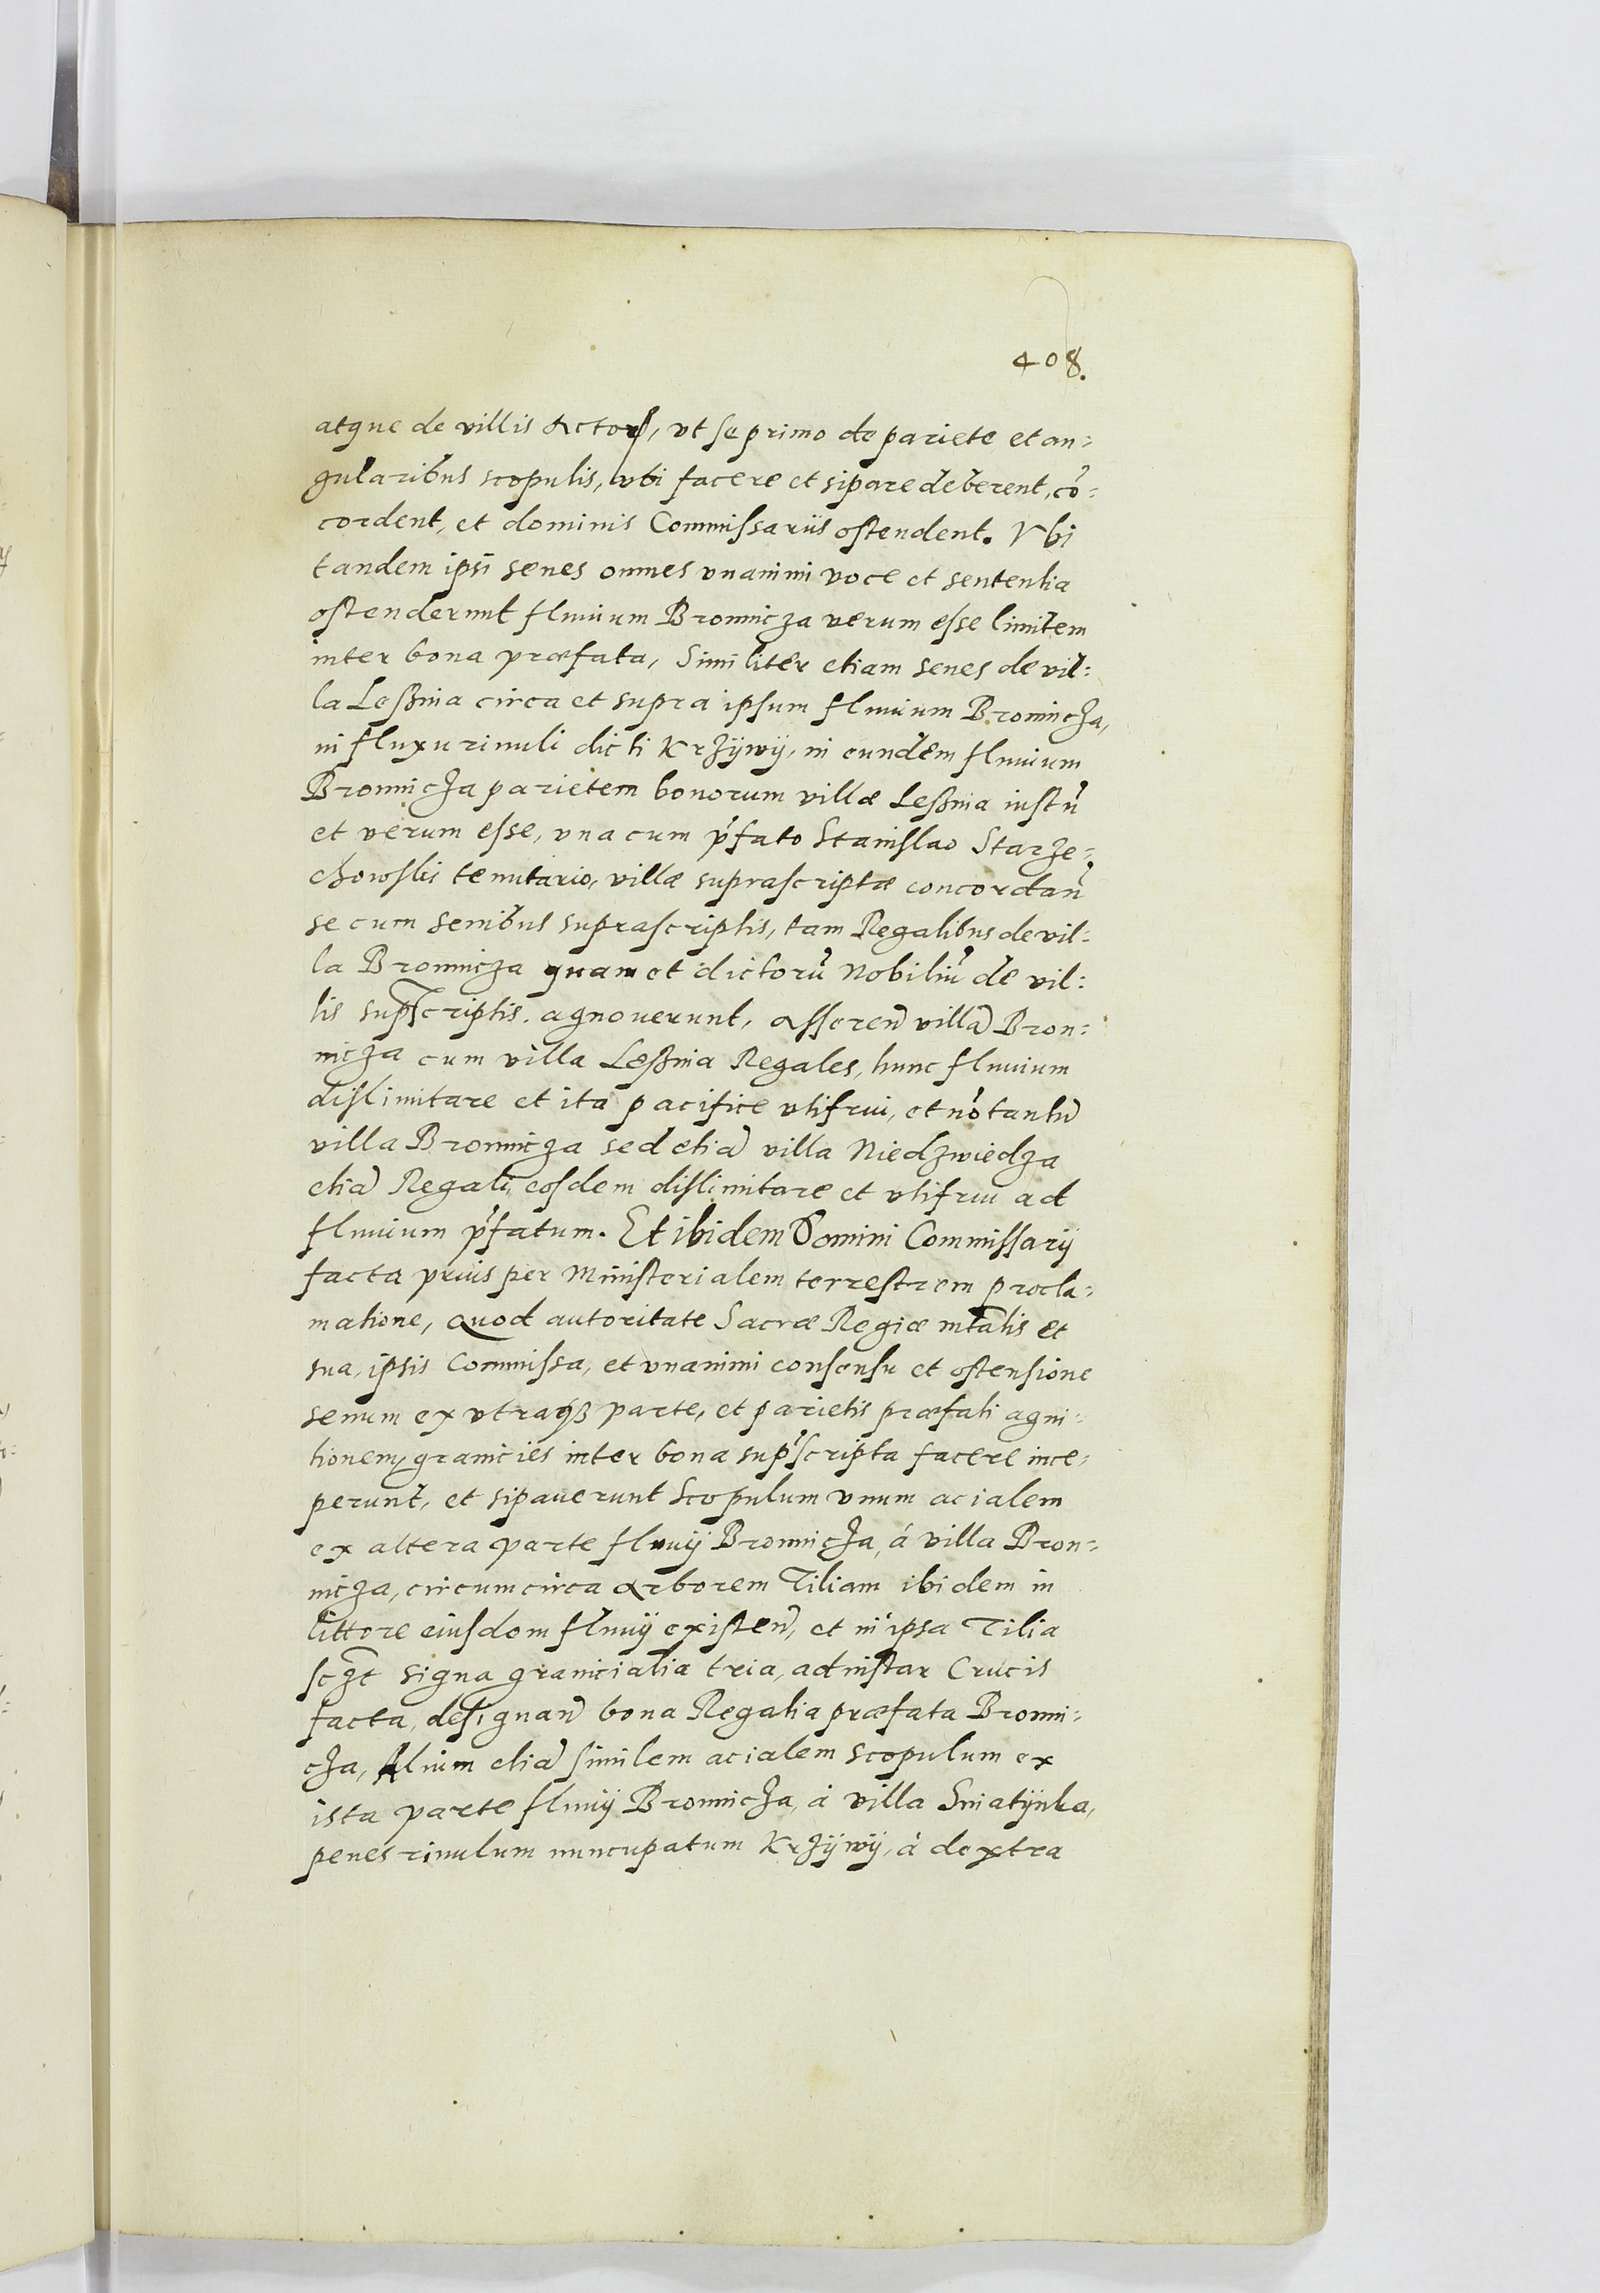 408.
atque de villis Actorꝝ, vt se primo de pariete et an=
gularibus scopulis, vbi facere et sipare deberent, cō=
cordent, et dominis Commissariis ostendent. Vbi
tandem ipsi senes omnes vnanimi voce et sententia
ostenderunt fluuium Bronnicza verum esse limitem
inter bona præfata, Similiter etiam senes de vil=
la Leßnia circa et supra ipsum fluuium Bronnicza,
in fluxu riuuli dicti Krzÿwÿ, in eundem fluuium
Bronnicza parietem bonorum villæ Leßnia iustū
et verum esse, vna cum p̄fato Stanislao Starze=
chowskis tenutario, villæ suprascriptæ concordan̄
se cum senibus suprascriptis, tam Regalibus de vil=
la Bronnicza quam et dictorū Nobiliū de vil=
lis sup̄scriptis. agnouerunt, Asseren̄ villā Bron=
nicza cum villa Leßnia Regales, hunc fluuium
dislimitare et ita pacifice vtifrui, et nō tantū
villa Bronnicza sed etiā villa Niedzwiedza
etiā Regali, eosdem dislimitare et vtifrui ad
fluuium p̄fatum. Et ibidem Domini Commissarij
facta prius per Ministerialem terrestrem procla=
matione, Quod autoritate Sacræ Regiæ mtatis et
sua, ipsis Commissa, et vnanimi consensu et ostensione
senum ex vtraqꝫ parte, et parietis præfati agni=
tionem, granicies inter bona sup̄scripta facere ince=
perunt, et sipauerunt Scopulum vnum acialem
ex altera parte fluuij Bronnicza, á villa Bron=
nicza, circumcirca Arborem Tiliam ibidem in
littore eiusdem fluuij existen̄, et in ipsa Tilia
sczt signa granicialia tria, ad instar Crucis
facta, designan̄ bona Regalia præfata Bronni=
cza, Alium etiā similem acialem scopulum ex
ista parte fluuij Bronnicza, á villa Sniatÿnka,
penes riuulum nuncupatum Krzÿwÿ, á dextra